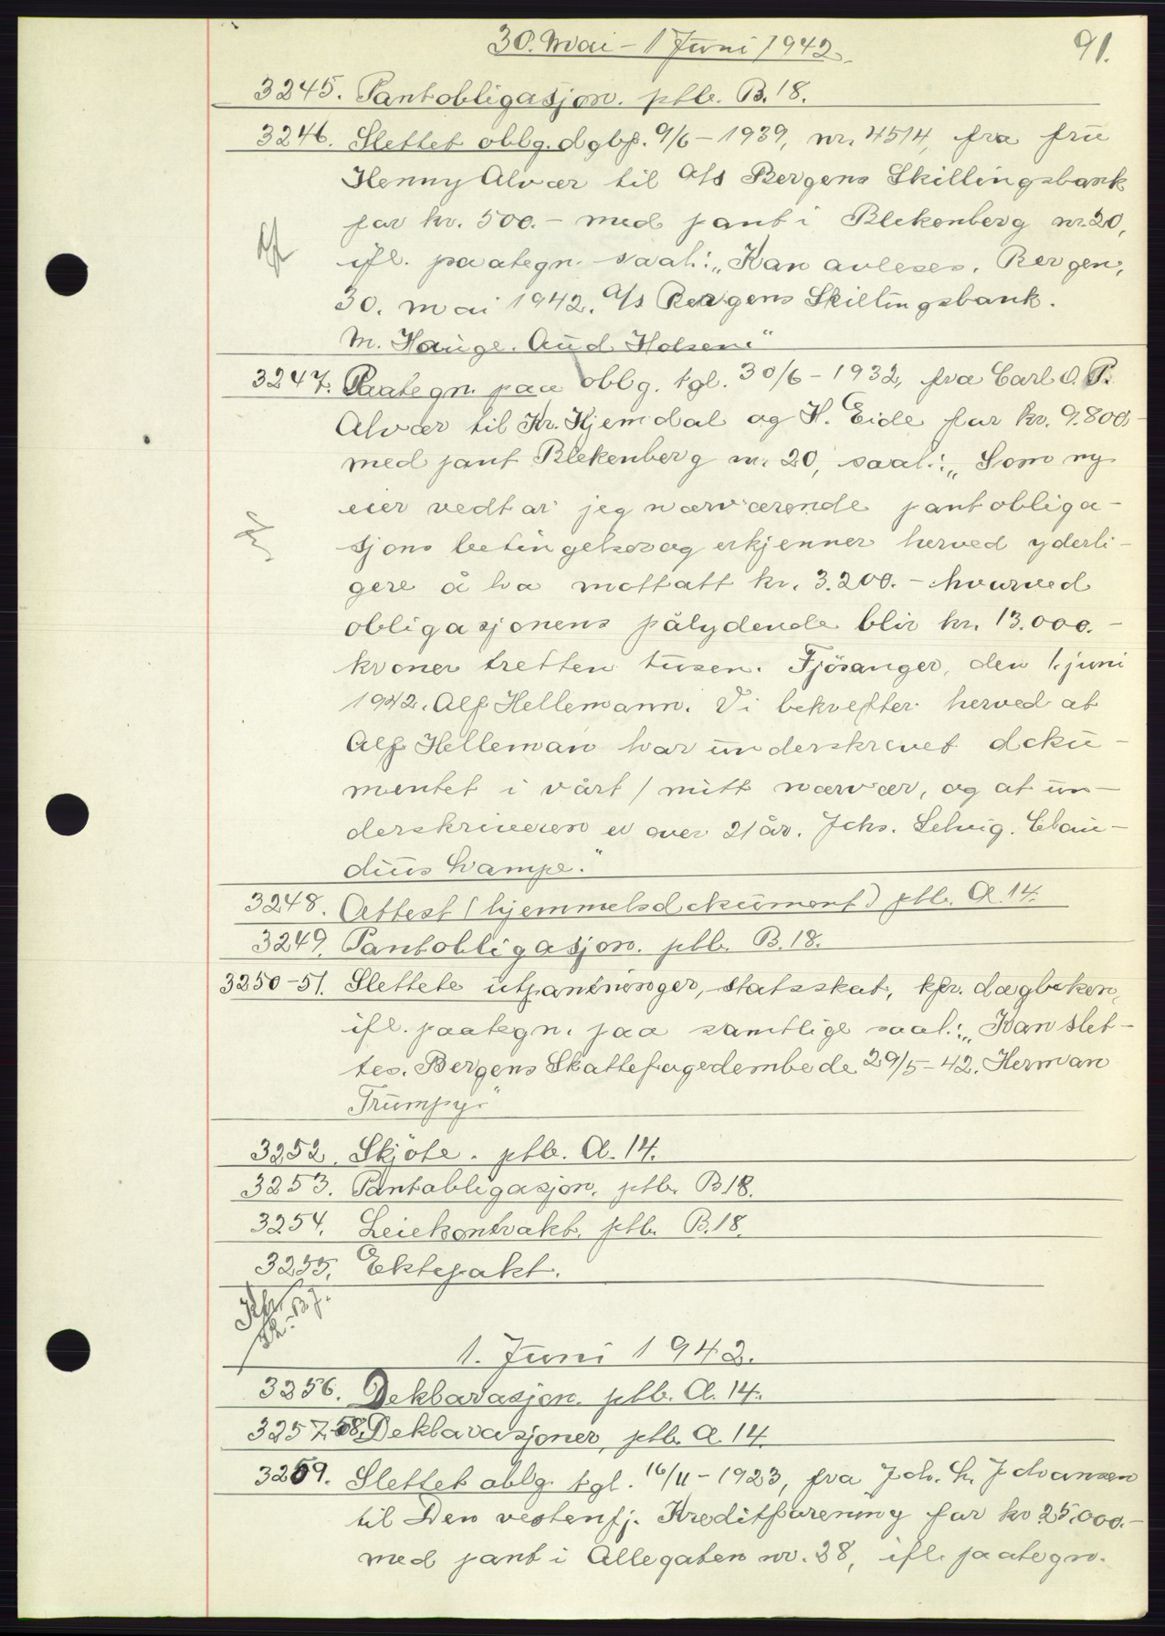 30. Mai – 1 Juni 1942.
91.
3245. Pantobligasjon. ptb. B. 18.
3246. Slettet oblg. dgbf. 9/6 – 1939, nr. 4514, fra frü
Henny Alvær til A/s Bergens Skillingsbank
for kr. 500.– med pant i Blekenberg nr. 20,
ifl. paategn. saal.: „Kan avleses. Bergen,
30. mai 1942. A/s Bergens Skillingsbank.
M. Hauge. Aud Holsen."
3247. Paategn. paa oblg. tgl. 30/6 – 1932, fra Carl O. P.
Alvær til Kr. Kjemdal og H. Eide for kr. 9.800.–
med pant Blekenberg nr. 20, saal.: „Som ny
eier vedtar jeg nærværende pantobliga–
sjons betingelser og erkjenner herved yderli–
gere å ha mottatt kr. 3.200.– hvorved
obligasjonens pålydende blir kr. 13.000.–
kroner tretten tusen. Fjösanger, den 1. juni
1942. Alf Hellemann. Vi bekrefter herved at
Alf Helleman har underskrevet doku–
mentet i vårt / mitt nærvær, og at un–
derskriveren er over 21 år. Johs. Selvig. Clau–
dius Lampe."
3248. Attest (hjemmelsdokument) ptb. A 14.
3249. Pantobligasjon. ptb. B. 18.
3250–51. Slettete utpantninger, statsskat, kfr. dagboken,
ifl. paategn. paa samtlige saal.: „Kan slet–
tes. Bergens Skattefogedembede 29/5 – 42. Herman
Trumpy."
3252. Skjöte. ptb. A. 14.
3253. Pantobligasjon. ptb. B 18.
3254. Leiekontrakt. ptb. B. 18.
3255. Ektepakt.
1. Juni 1942.
3256. Deklarasjon. ptb. A. 14.
3257–58. Deklarasjoner, ptb. A 14.
3259. Slettet oblg. tgl. 16/11 – 1923, fra Joh. L. Johansen
til Den vestenfj. Kreditforening for kr 25.000.–
med pant i Allegaten nr. 28, ifl. paategn.